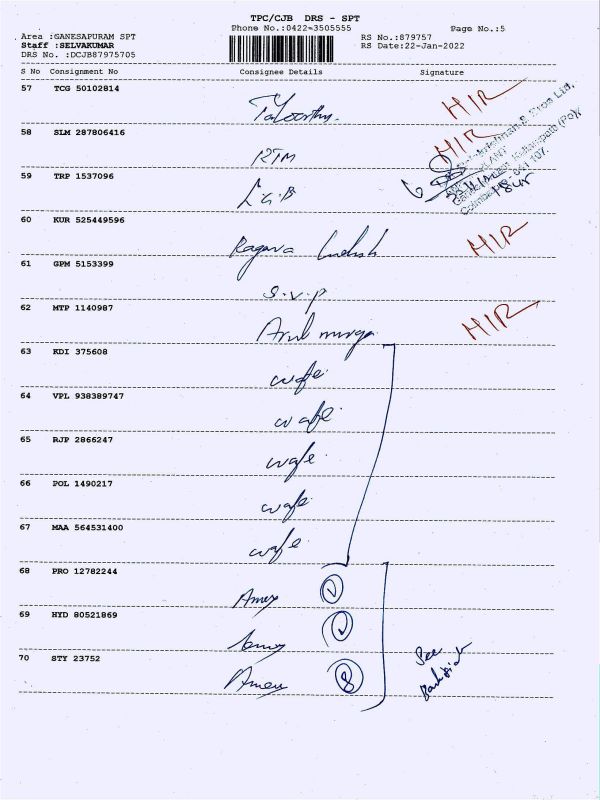 TPC/CJB DRS - SPT
Phone No.:0422-3505555
Page No.:5
Area :GANESAPURAM SPT
RS No.:879757
Staff :SELVAKUMAR
RS Date:22-Jan-2022
DRS No. :DCJB87975705
S No Consignment No Consignee Details Signature
57 TCG 50102814
HIR
58 SLM 287806416
KTM
HIR
59 TRP 1537096
L G B
60 KUR 525449596
Ragava
HIR
61 GPM 5153399
S.V.P
62 MTP 1140987
Arul muruga
HIR
63 KDI 375608
wafe
64 VPL 938389747
wafe
65 RJP 2866247
wafe
66 POL 1490217
wafe
67 MAA 564531400
wafe
68 PRO 12782244
Amex
69 HYD 80521869
Amex
70 STY 23752
Amex
See